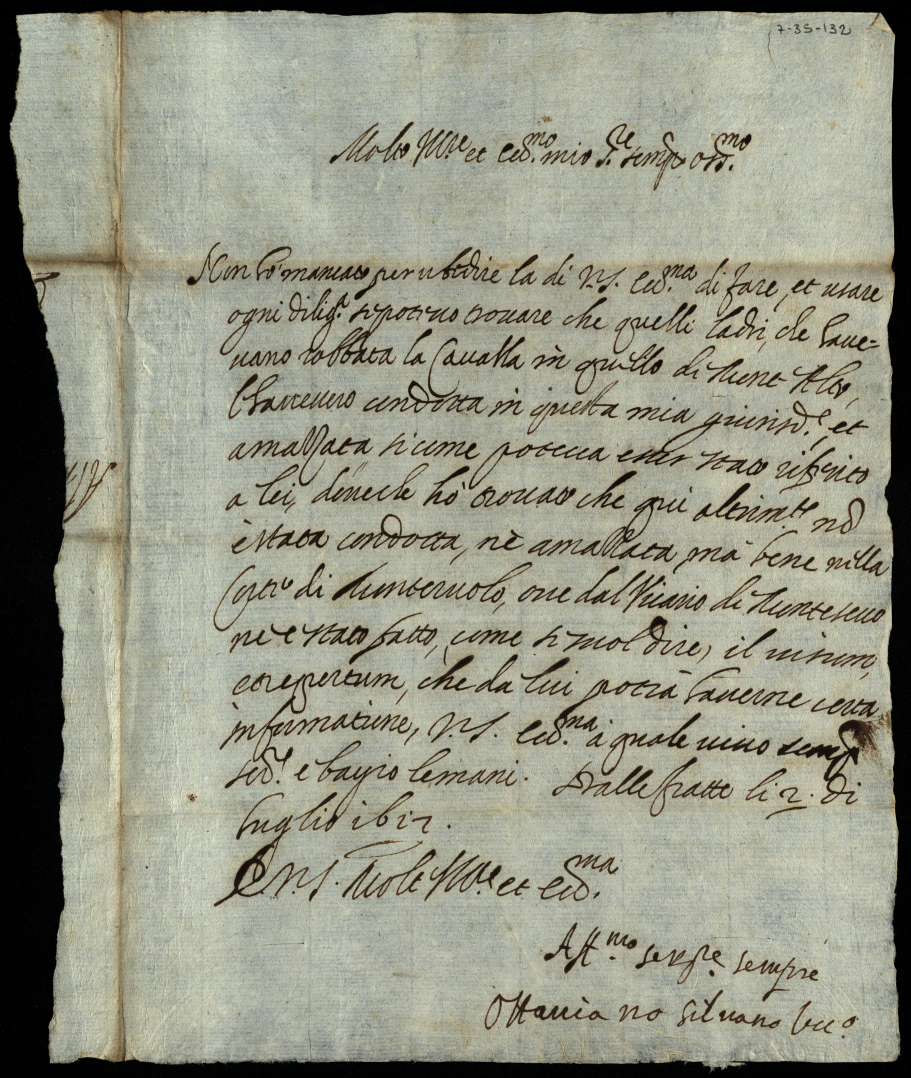 7-35-132
Molto Ill.re et ecc.mo mio S.re sempre oss.mo
Non hò mancato per ubedire la di V.S. ecc.ma di fare, et usare
ogni dilig.a se potevo trovare che quelli ladri, che have-
vano robbata la Cavalla in quello di Mont' Alto,
l'havessero condotta in questa mia giurisd.e, et
amazzata si come poteva esser stato riferito
a lei, dove che hò trovato che qui altrim.te nò
è stata condotta, nè amazzata, mà bene nella
Corte di Montervolo, ove dal Vicario di Montesecco
nè è stato fatto, come si suol dire, il visum,
et repertum, che da lui potrà haverne certa
informatione, V.S. ecc.ma à quale vivo sempre
se.re e bagio le mani. Dalle fratte li 2. di
luglio 1617.
D. V.S. Molto Ill.re et ecc.ma
Aff.mo ser.re sempre
Ottaviano Silvano